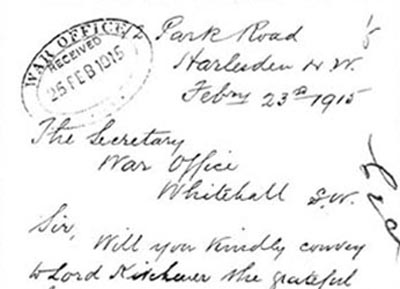 WAR OFFICE
RECEIVED
25 FEB 1915
Park Road
Harlesden N.W.
Febry 23rd 1915
The Secretary
War Office
Whitehall S.W.
Sir,
Will you kindly convey
to Lord Kitchener the grateful